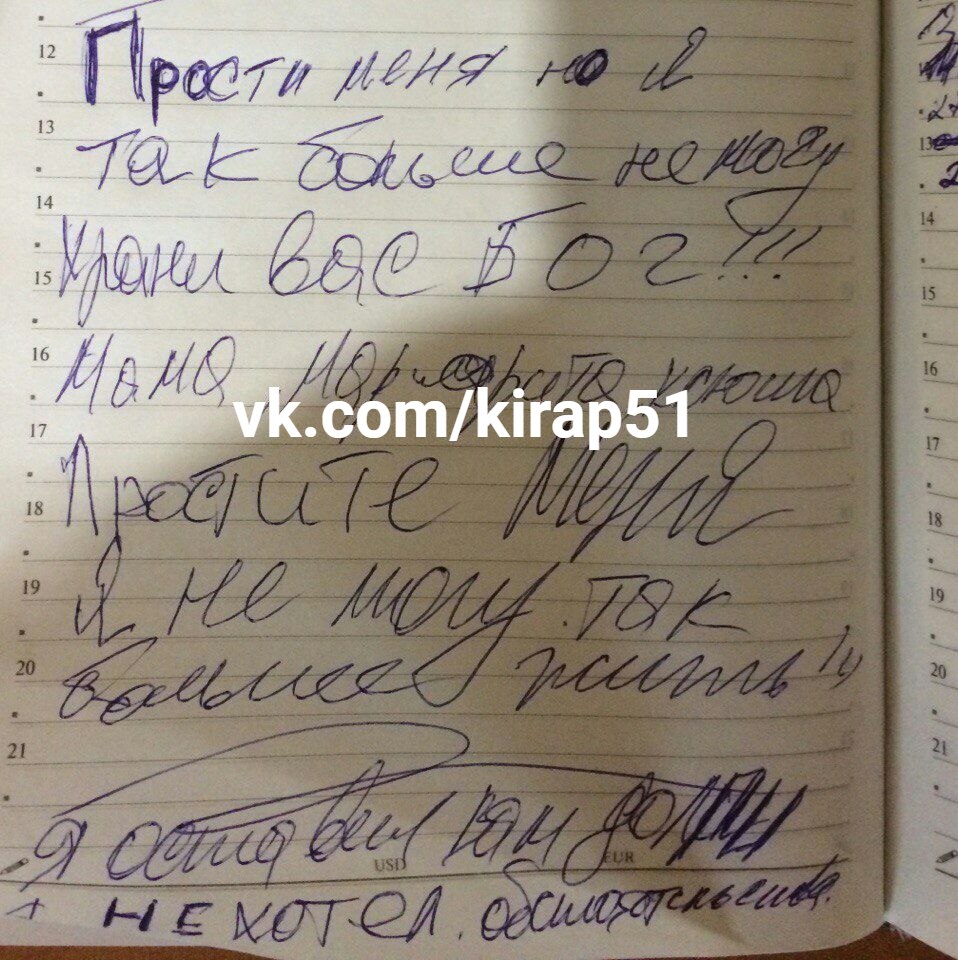 12
Прости меня но я
13
так больше не могу
14
Храни вас Бог!!!
15
16
Мама Маргарита ксюша
vk.com/kirap51
17
Простите Меня
18
Я не могу так
19
больше жить
20
21
Я оставил вам долги
USD EUR
я не хотел. обстоятельства.
13
14
15
16
17
18
19
20
21